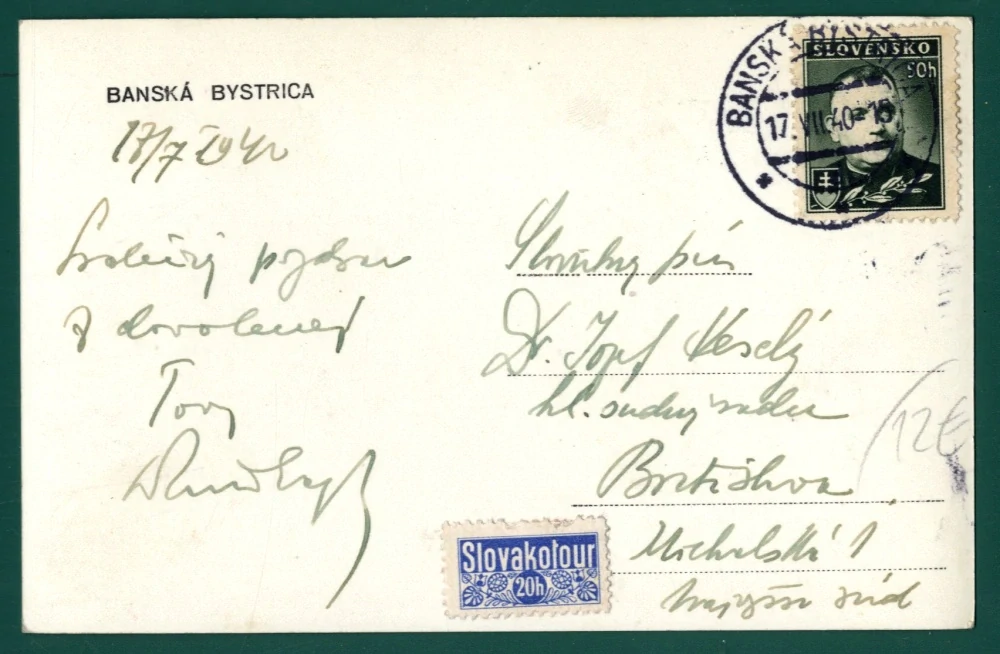 BANSKÁ BYSTRICA
17/7 1940
Srdečný pozdrav
z dovolenej
Tvoj
BANSKÁ BYSTRICA
17.VII.40-15
SLOVENSKO
50h
pán
Dr. Jozef Veselý
hl. súdny radca
Bratislava
Michalská 1
najvyšší súd
12€
Slovakotour
20h